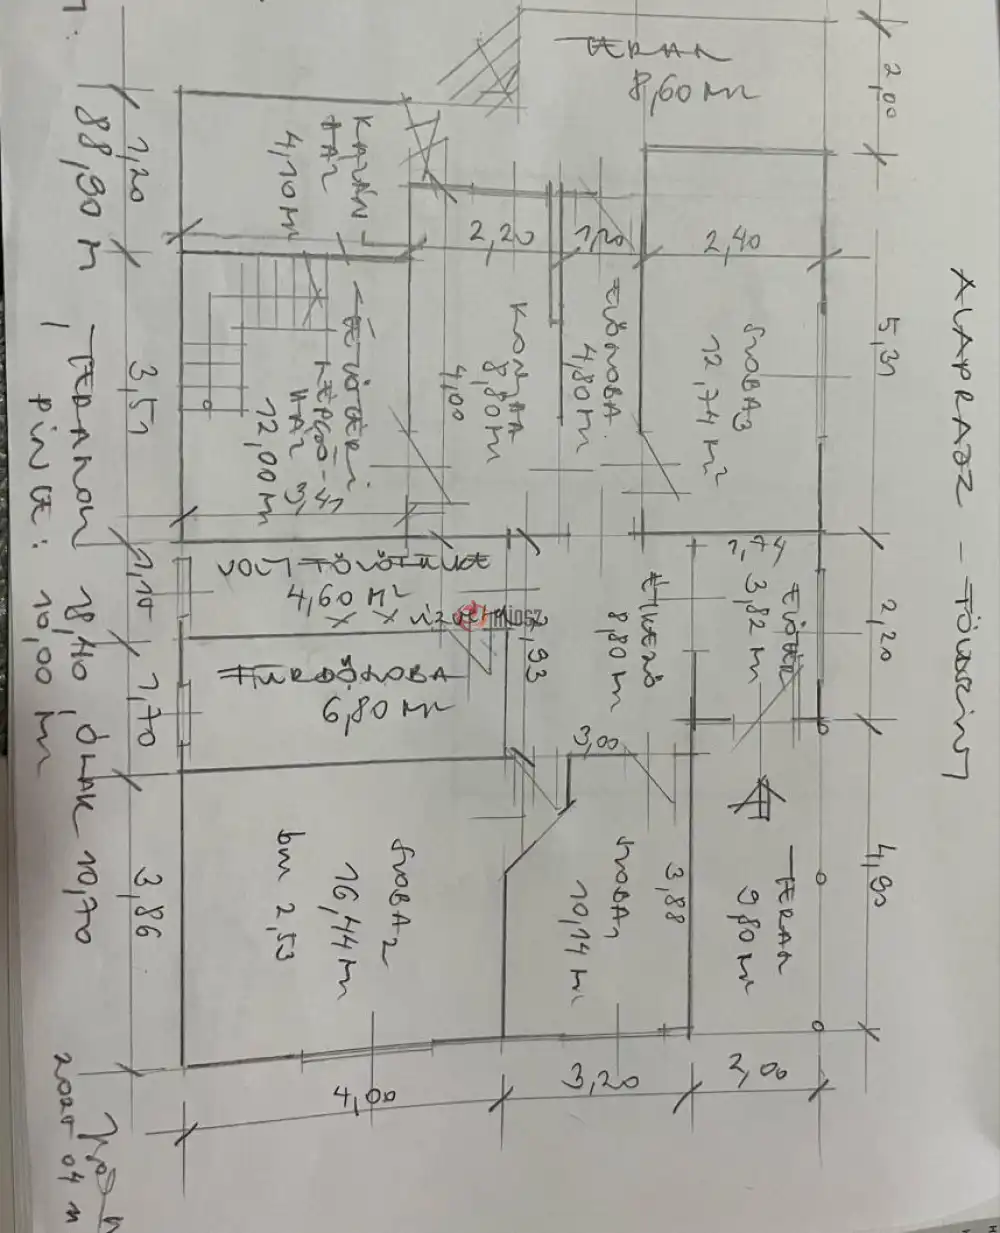 ALAPRAJZ - FÖLDSZINT
TERASZ
8,60 m²
2,00
KAZÁN
HÁZ
4,10 m²
2,20
1,20
2,40
5,31
SZOBA3
12,74 m²
ELŐSZOBA
4,80 m²
KONYHA
8,80 m²
4,00
TETŐTÉRI
LÉPCSŐ-
HÁZ
12,00 m²
3,41
VOLT FÖLDFÜLKE
4,60 m²
FÜRDŐSZOBA
6,80 m²
2,93
ÉTKEZŐ
8,80 m²
1,74
ELŐTÉR
3,82 m²
2,20
3,00
SZOBA2
16,44 m²
bm 2,53
SZOBA1
10,14 m²
3,88
TERASZ
9,80 m²
4,90
4,00
3,20
2,00
1,20
3,51
1,10
1,70
3,86
88,90 m²
TERASZOK 18,40
10,70
PINCE: 10,00 m²
2020 04